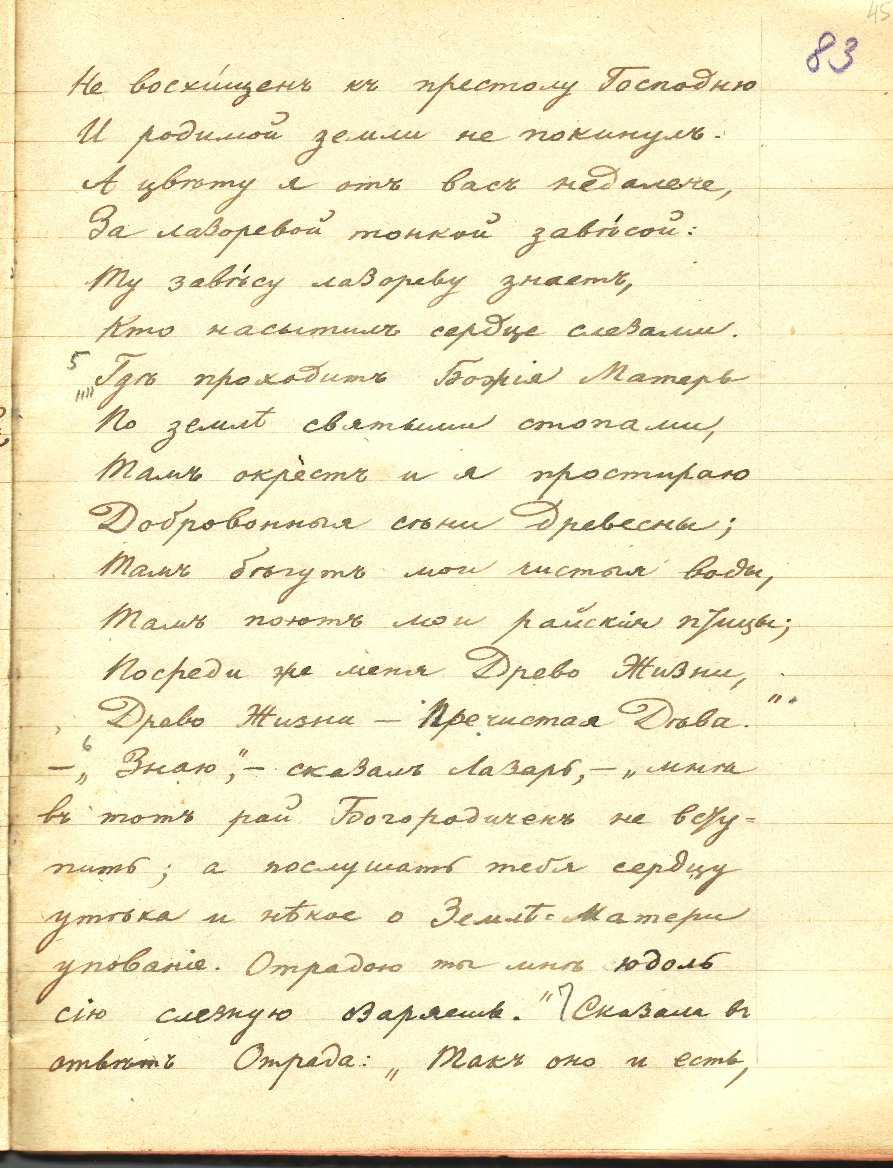 45
83
Не восхи́щенъ къ престолу Господню
И родимой земли не покинулъ.
А цвѣту я отъ васъ недалече,
За лазоревой тонкой завѣ́сой:
Ту завѣ́су лазореву знаетъ,
Кто насытилъ сердце слезами.
5 „„Гдѣ проходитъ Божія Матерь
По землѣ святыми стопами,
Тамъ окре́стъ и я простираю
Добровонныя сѣни Древесны;
Тамъ бѣгутъ мои чистыя воды,
Тамъ поютъ мои райскія птицы;
Посреди же меня Древо Жизни,
Древо Жизни — Пречистая Дѣва.“
6 — „Знаю“, — сказалъ Лазарь, — „мнѣ
въ тотъ рай Богородиченъ не всту=
пить; а послушать тебя сердцу
утѣха и нѣкое о Землѣ-Матери
упованіе. Отрадою ты мнѣ юдоль
сію слезную озаряешь.“ 7 Сказала въ
отвѣтъ Отрада: „Такъ оно и есть,